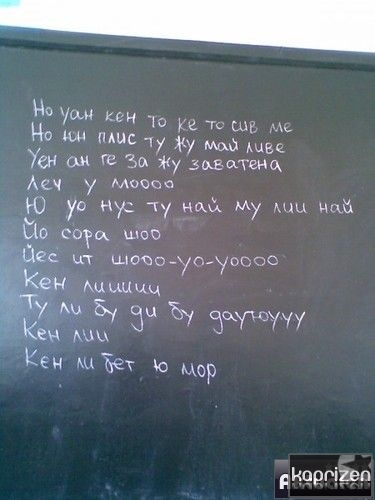 Но уан кен то ке то сив ме
Но юн плис ту жу май ливе
Уен ан ге за жу заватена
Леч у моооо
Ю уо нус ту най му лии най
Йо сора шоо
Йес ит шооо-уо-уоооо
Кен лишиии
Ту ли бу ди бу даутюууу
Кен лии
Кен ли бет ю мор
kaprizen